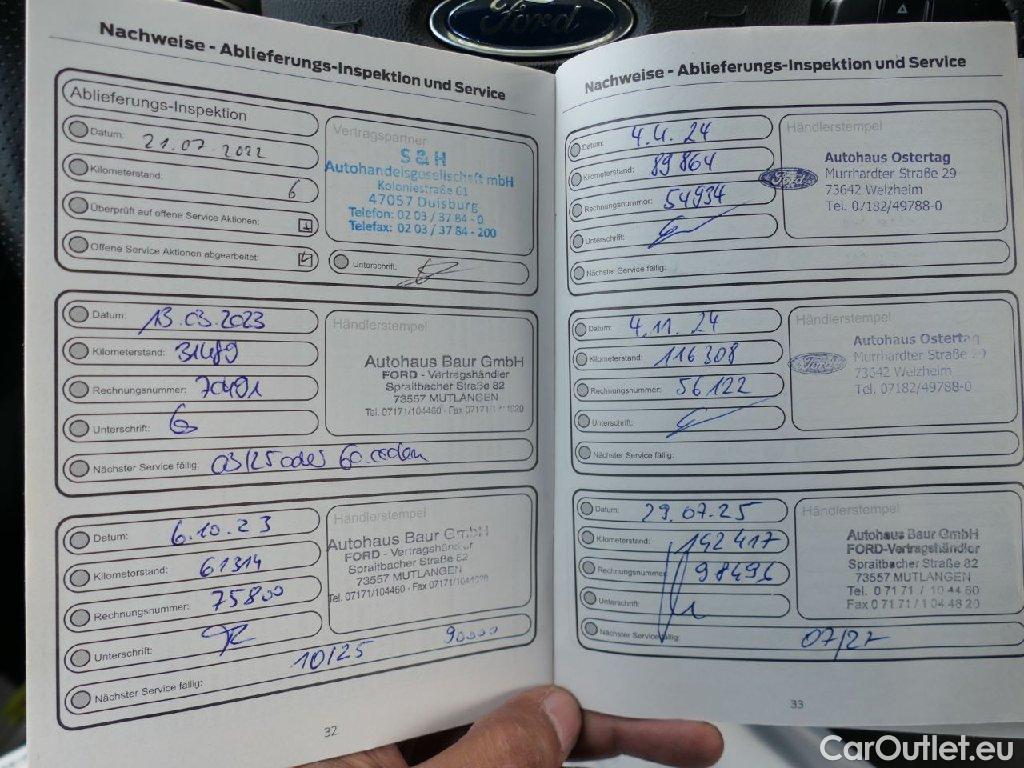 Ford
Nachweise - Ablieferungs-Inspektion und Service
Ablieferungs-Inspektion
Datum: 21.07.2022
Kilometerstand: 6
Überprüft auf offene Service Aktionen:
Offene Service Aktionen abgearbeitet:
Vertragspartner
S&H
Autohandelsgesellschaft mbH
Koloniestraße 61
47057 Duisburg
Telefon: 02 03 / 37 84 - 0
Telefax: 02 03 / 37 84 - 200
Unterschrift:
Datum: 13.03.2023
Kilometerstand: 31489
Rechnungsnummer: 70401
Unterschrift:
Nächster Service fällig: 03/25 oder 60.000km
Händlerstempel
Autohaus Baur GmbH
FORD - Vertragshändler
Spraitbacher Straße 82
73557 MUTLANGEN
Tel. 07171/104460 - Fax 07171/
Datum: 6.10.23
Kilometerstand: 61314
Rechnungsnummer: 75800
Unterschrift:
Nächster Service fällig: 10/25 90000
Händlerstempel
Autohaus Baur GmbH
FORD - Vertragshändler
Spraitbacher Straße 82
73557 MUTLANGEN
Tel. 07171/104460 - Fax 07171/
32
Nachweise - Ablieferungs-Inspektion und Service
Datum: 4.4.24
Kilometerstand: 89864
Rechnungsnummer: 54934
Unterschrift:
Nächster Service fällig:
Händlerstempel
Ford
Autohaus Ostertag
Murrhardter Straße 29
73642 Welzheim
Tel. 07182/49788-0
Datum: 4.11.24
Kilometerstand: 116308
Rechnungsnummer: 56122
Unterschrift:
Nächster Service fällig:
Händlerstempel
Ford
Autohaus Ostertag
Murrhardter Straße 29
73642 Welzheim
Tel. 07182/49788-0
Datum: 29.07.25
Kilometerstand: 142417
Rechnungsnummer: 98496
Unterschrift:
Nächster Service fällig: 07/27
Händlerstempel
Autohaus Baur GmbH
FORD-Vertragshändler
Spraitbacher Straße 82
73557 MUTLANGEN
Tel. 0 71 71 / 10 44 60
Fax 0 71 71 / 1 04 48 20
33
CarOutlet.eu